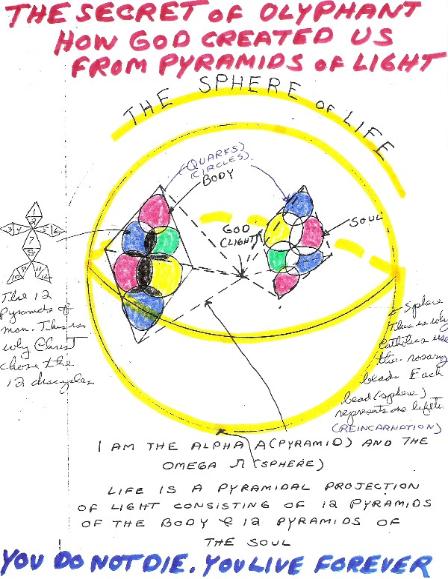 THE SECRET OF OLYPHANT
HOW GOD CREATED US
FROM PYRAMIDS OF LIGHT
THE SPHERE OF LIFE
(QUARES)
CIRCLES)
BODY
GOD
(LIGHT)
SOUL
1
2
3
4
5
6
7
The 12
Pyramids of
man. This is
why Christ
chose the
12 disciples
Sphere
This is why
Catholics use
the rosary
beads. Each
bead (sphere)
represents one lifetime
(REINCARNATION)
I AM THE ALPHA A (PYRAMID) AND THE
OMEGA Ω (SPHERE)
LIFE IS A PYRAMIDAL PROJECTION
OF LIGHT CONSISTING OF 12 PYRAMIDS
OF THE BODY & 12 PYRAMIDS OF
THE SOUL
YOU DO NOT DIE. YOU LIVE FOREVER